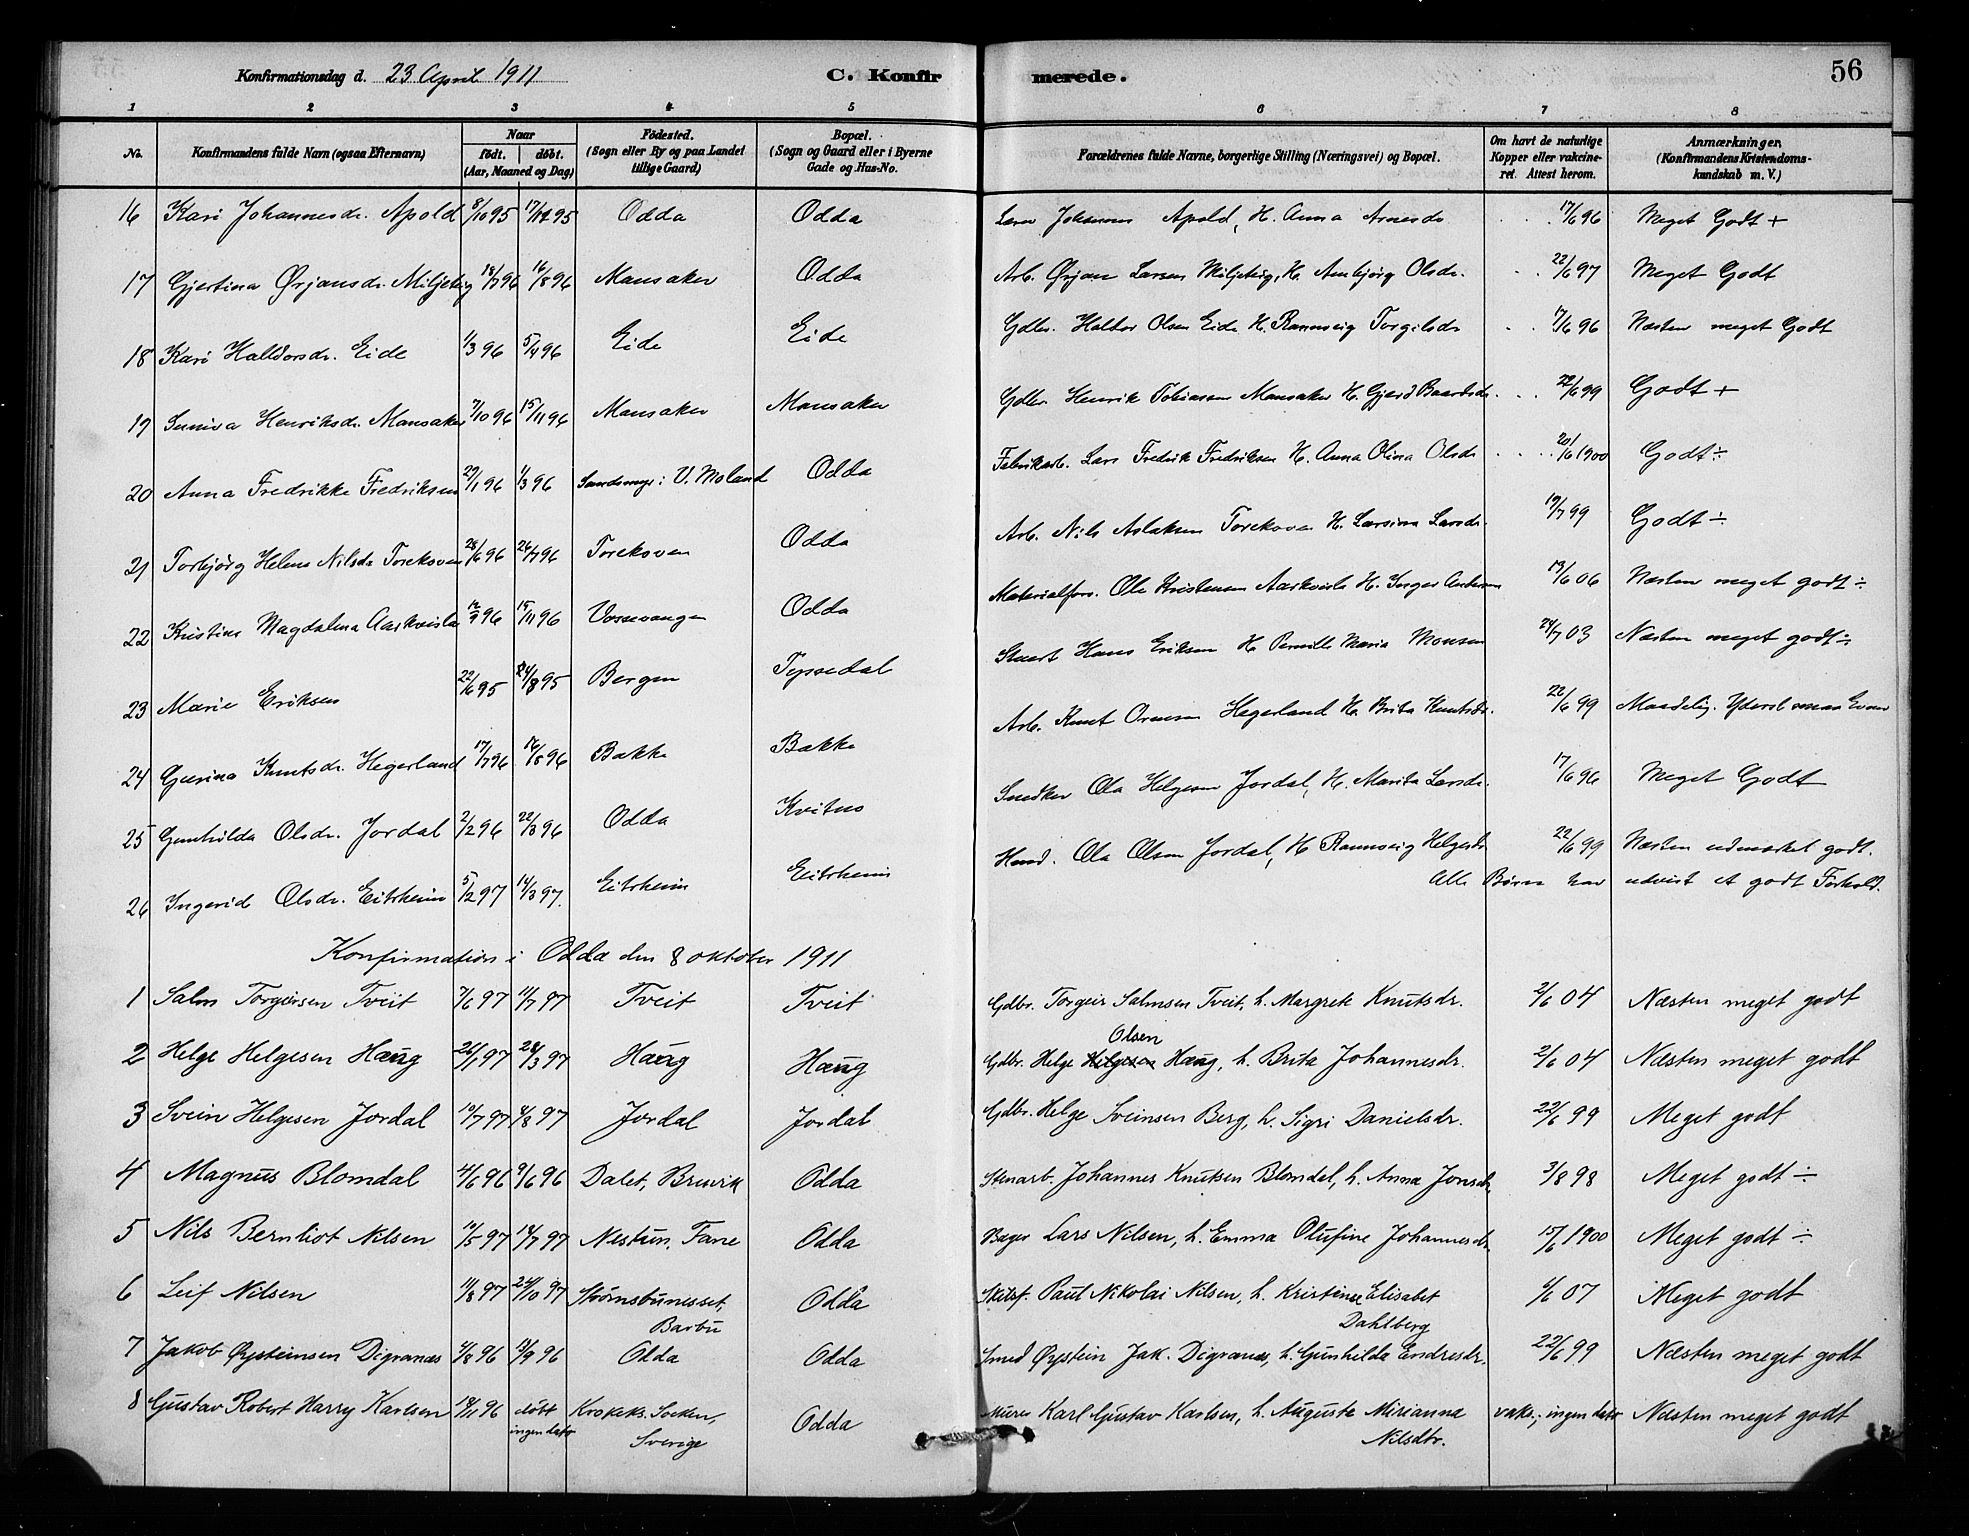 Konfirmationsdag d. 23 April 1911 C. Konfirmerede. 56
1 2 3 4 5 6 7 8
No. Konfirmandens fulde Navn (ogsaa Efternavn) Naar födt. döbt. (Aar, Maaned og Dag) Födested. (Sogn eller By og paa Landet tillige Gaard) Bopæl. (Sogn og Gaard eller i Byerne Gade og Hus-No. Forældrenes fulde Navne, borgerlige Stilling (Næringsvei) og Bopæl. Om havt de naturlige Kopper eller vakcineret. Attest herom. Anmærkninger, (Konfirmandens Kristendomskundskab m. V.)
16 Kari Johannesdr. Apold 8/10 95 17/12 95 Odda Odda Johannes Apold, H. Anna Arnesdr 17/6 96 Meget Godt +
17 Gjertina Ørjansdr. Miljeteig 18/7 96 16/8 96 Mansaker Odda Arb. Ørjan Larsen Miljeteig, H. Ambjørg Olsdr. 22/6 97 Meget Godt
18 Kari Halldorsdr. Eide 1/3 96 5/4 96 Eide Eide Gdbr. Haldor Olsen Eide H. Rannveig Torgilsdr 17/6 96 Næsten meget Godt
19 Suniva Henriksdr. Mansaker 7/10 96 15/11 96 Mansaker Mansaker Gdbr. Henrik Tobiassen Mansaker H. Gjerd Baardsdr. 22/6 99 Godt +
20 Anna Fredrikke Fredriksen 29/1 96 1/3 96 Sandsmyr i V. Moland Odda Fabrikarb. Lars Fredrik Fredriksen H. Anna Olina Olsdr 20/6 1900 Godt ÷
21 Torbjörg Helene Nilsdr Toreksven 28/6 96 26/7 96 Toreksven Odda Arb. Nils Aslaksen Toreksven H. Larsina Larsdr. 19/7 99 Godt ÷
22 Kristine Magdalena Aarkvisla 12/9 96 15/11 96 Vossevangen Odda Materialforv. Ole Kristensen Aarkvisla H. Inger Andersen 19/6 06 Næsten meget godt ÷
23 Marie Eriksen 22/6 95 24/8 95 Bergen Tyssedal Hans Eriksen H. Pernille Maria Monsen 24/7 03 Næsten meget godt ÷
24 Gurina Knutsdr. Hegerland 17/7 96 16/8 96 Bakke Bakke Arb. Knut Ormsen Hegerland H. Brita Knutsdr. 22/6 99 Maadelig. Yderst smaa Evner
25 Gunhilda Olsdr. Jordal 2/2 96 22/3 96 Odda Kvitno Snedker Ola Helgesen Jordal, H. Marita Larsdr. 17/6 96 Meget Godt
26 Ingerid Olsdr. Eitrheim 5/2 97 14/3 97. Eitrheim Eitrheim Hand. Ola Olsen Jordal, H. Rannveig Helgesdr 22/6 99 Næsten udmærket godt.
Alle Børn har udvist et godt Forhold.
Konfirmation i Odda den 8 oktober 1911
1 Salm Torgeirsen Tveit 7/6 97 11/7 97 Tveit Tveit Gdbr. Torgeir Salmsen Tveit, h. Margrete Knutsdr. 2/6 04 Næsten meget godt
2 Helge Helgesen Haug 26/1 97 28/3 97 Haug Haug Gdbr. Helge Helgesen Olsen Haug, h. Brita Johannesdr. 2/6 04 Næsten meget godt
3 Svein Helgesen Jordal 10/7 97 1/8 97 Jordal Jordal Gdbr. Helge Sveinsen Berg, h. Sigri Danielsdr. 22/6 99 Meget godt
4 Magnus Blomdal 4/6 96 9/6 96 Dalet, Bruvik Odda Stenarb. Johannes Knutsen Blomdal, h. Anna Jonsdr. 3/8 98 Meget godt ÷
5 Nils Bernhot Nilsen 10/5 97 14/7 97 Nestun, Fane Odda Bager Lars Nilsen, h. Emma Olufine Johannesdr. 15/6 1900 Meget godt ÷
6 Leif Nilsen 11/8 97 24/10 97 Strømsbunesset, Barbu Odda Paul Nikolai Nilsen, h. Kristine Elisabet Dahlberg 6/6 07 Meget godt
7 Jakob Øysteinsen Digranæs 4/8 96 13/9 96 Odda Odda Smed Øystein Jak. Digranæs, h. Gunhilda Endresdr. 22/6 99 Næsten meget godt
8 Gustav Robert Harry Karlsen 19/1 96 døbt ingen dato Krokeks Socken, Sverige Odda Murer Karl Gustav Karlsen, h. Augusta Mirianna Nilsdtr. vaks., ingen dato Næsten meget godt